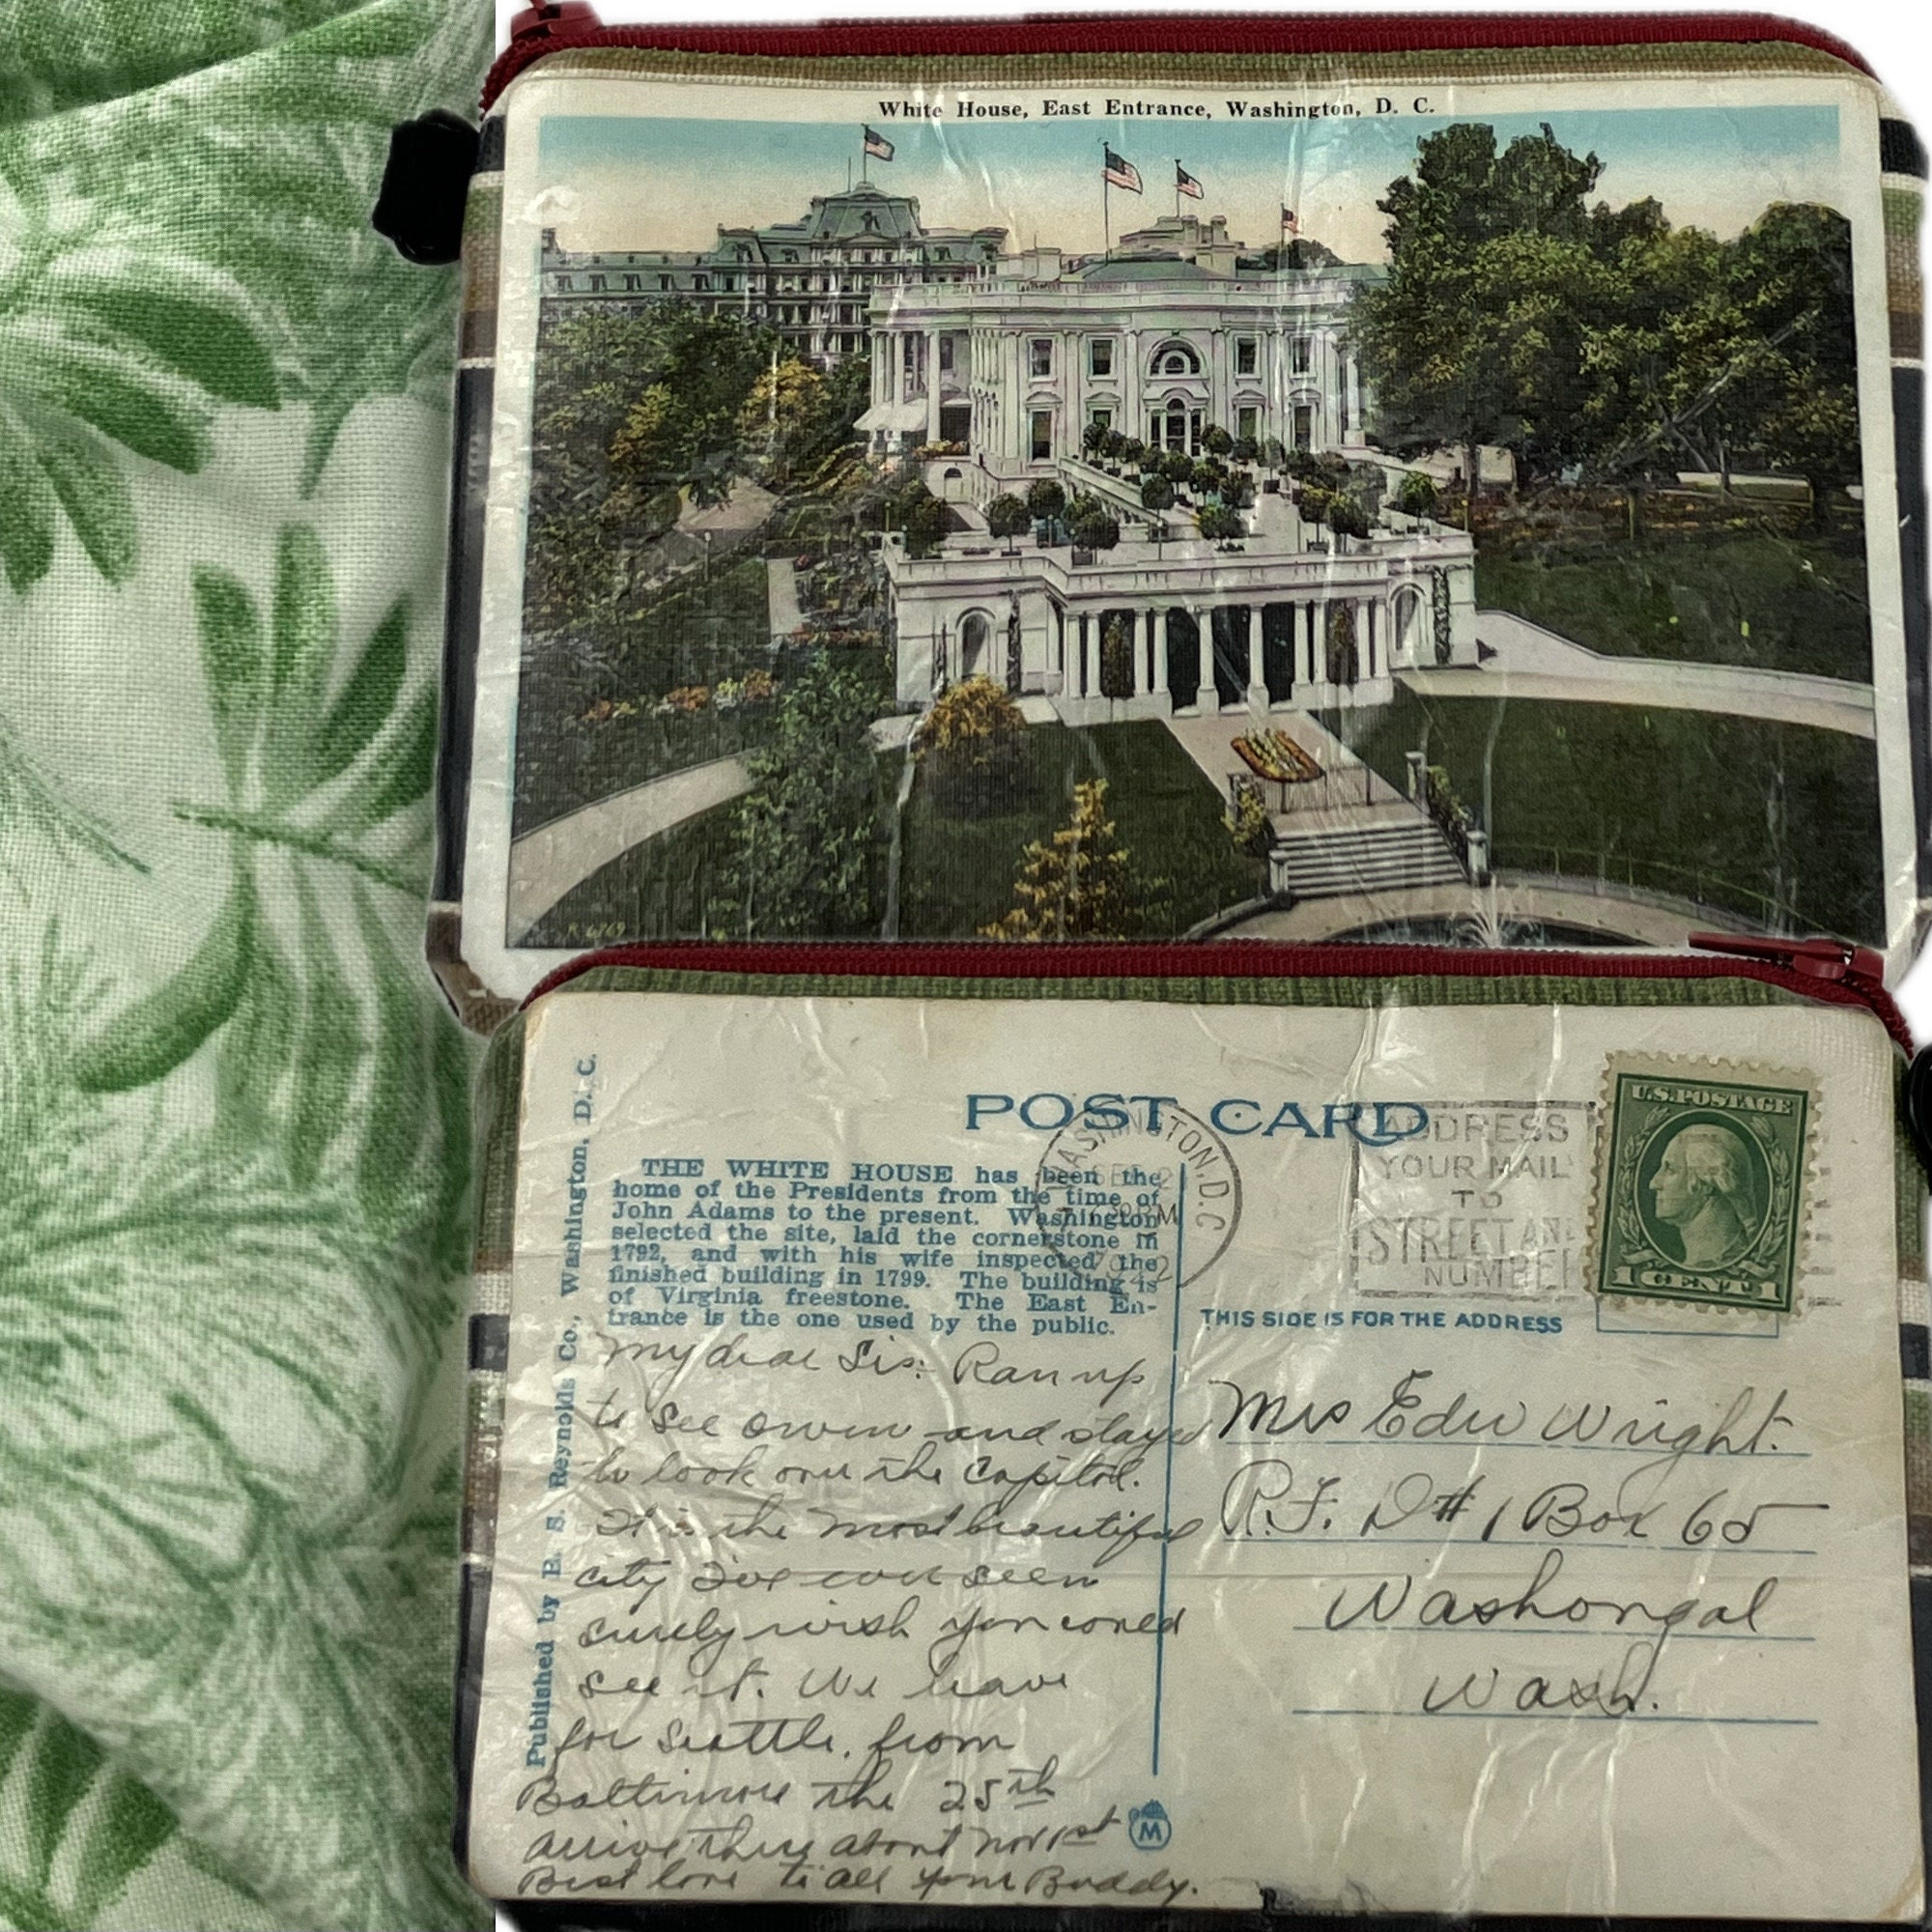 White House, East Entrance, Washington, D. C.
R-6769
Published by B. S. Reynolds Co., Washington, D. C.
POST CARD
WASHINGTON, D.C.
SEP 2
PM
ADDRESS
YOUR MAIL
TO
STREET AND
NUMBER
U.S. POSTAGE
1 CENT 1
THE WHITE HOUSE has been the
home of the Presidents from the time of
John Adams to the present. Washington
selected the site, laid the cornerstone in
1792, and with his wife inspected the
finished building in 1799. The building is
of Virginia freestone. The East En-
trance is the one used by the public.
THIS SIDE IS FOR THE ADDRESS
My dear Sis: Ran up
to see Owen and stayed
to look over the Capitol.
It is the most beautiful
city I've ever seen
surely wish you coued
see it. We leave
for Seattle, from
Baltimore the 25th
arrive there about Nov 1st
Best love to all your Buddy.
Mrs Edw Wright.
R.F. D # 1 Box 65
Washongal
Wash.
M